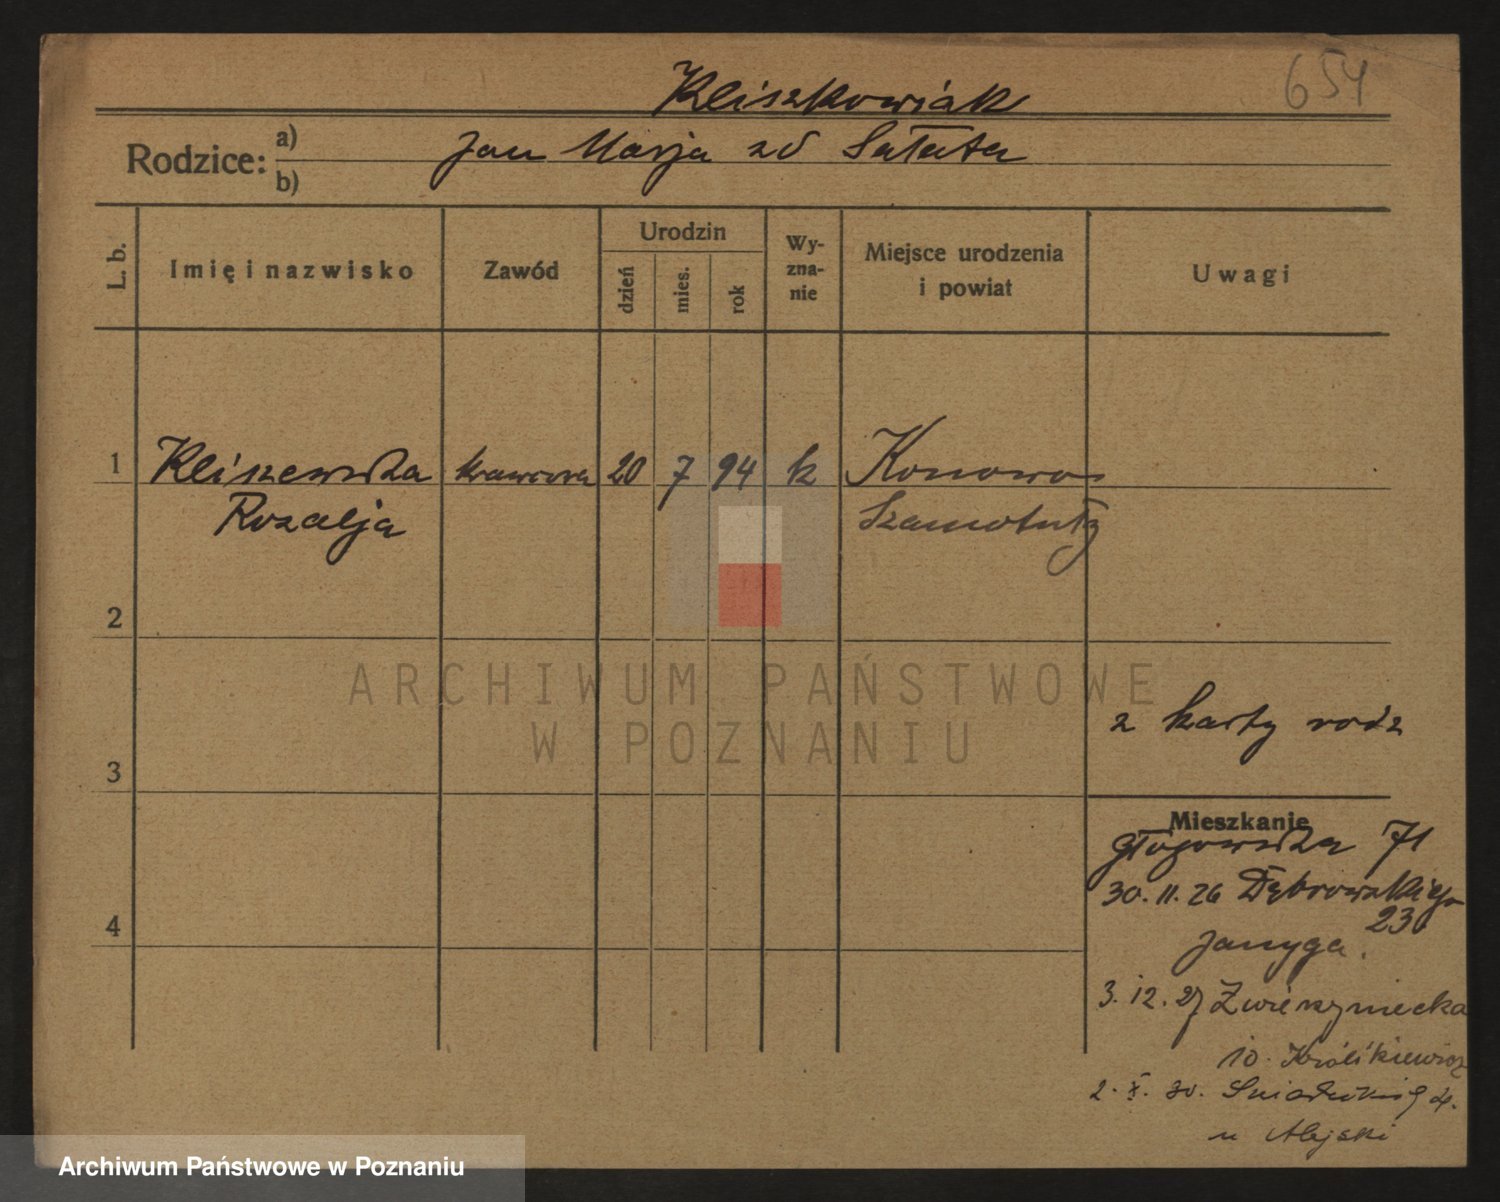 654
Kliszkowiak
Rodzice: a) b)
Jan Marja zd Sałata
L. b.
Imię i nazwisko
Zawód
Urodzin
dzień
mies.
rok
Wy-
zna-
nie
Miejsce urodzenia
i powiat
Uwagi
1 Kliszewska krawcowa 20 7 94 k Konowo
Rozalja Szamotuły
2
3
4
z karty rodz
Mieszkanie
Głogowska 71
30.11.26 Dąbrowskiego
23
3.12.27 Zwierzyniecka
10. Królikiewicz
2. X. 30. Śniadeckich 4.
u Alejski
ARCHIWUM PAŃSTWOWE
W POZNANIU
Archiwum Państwowe w Poznaniu